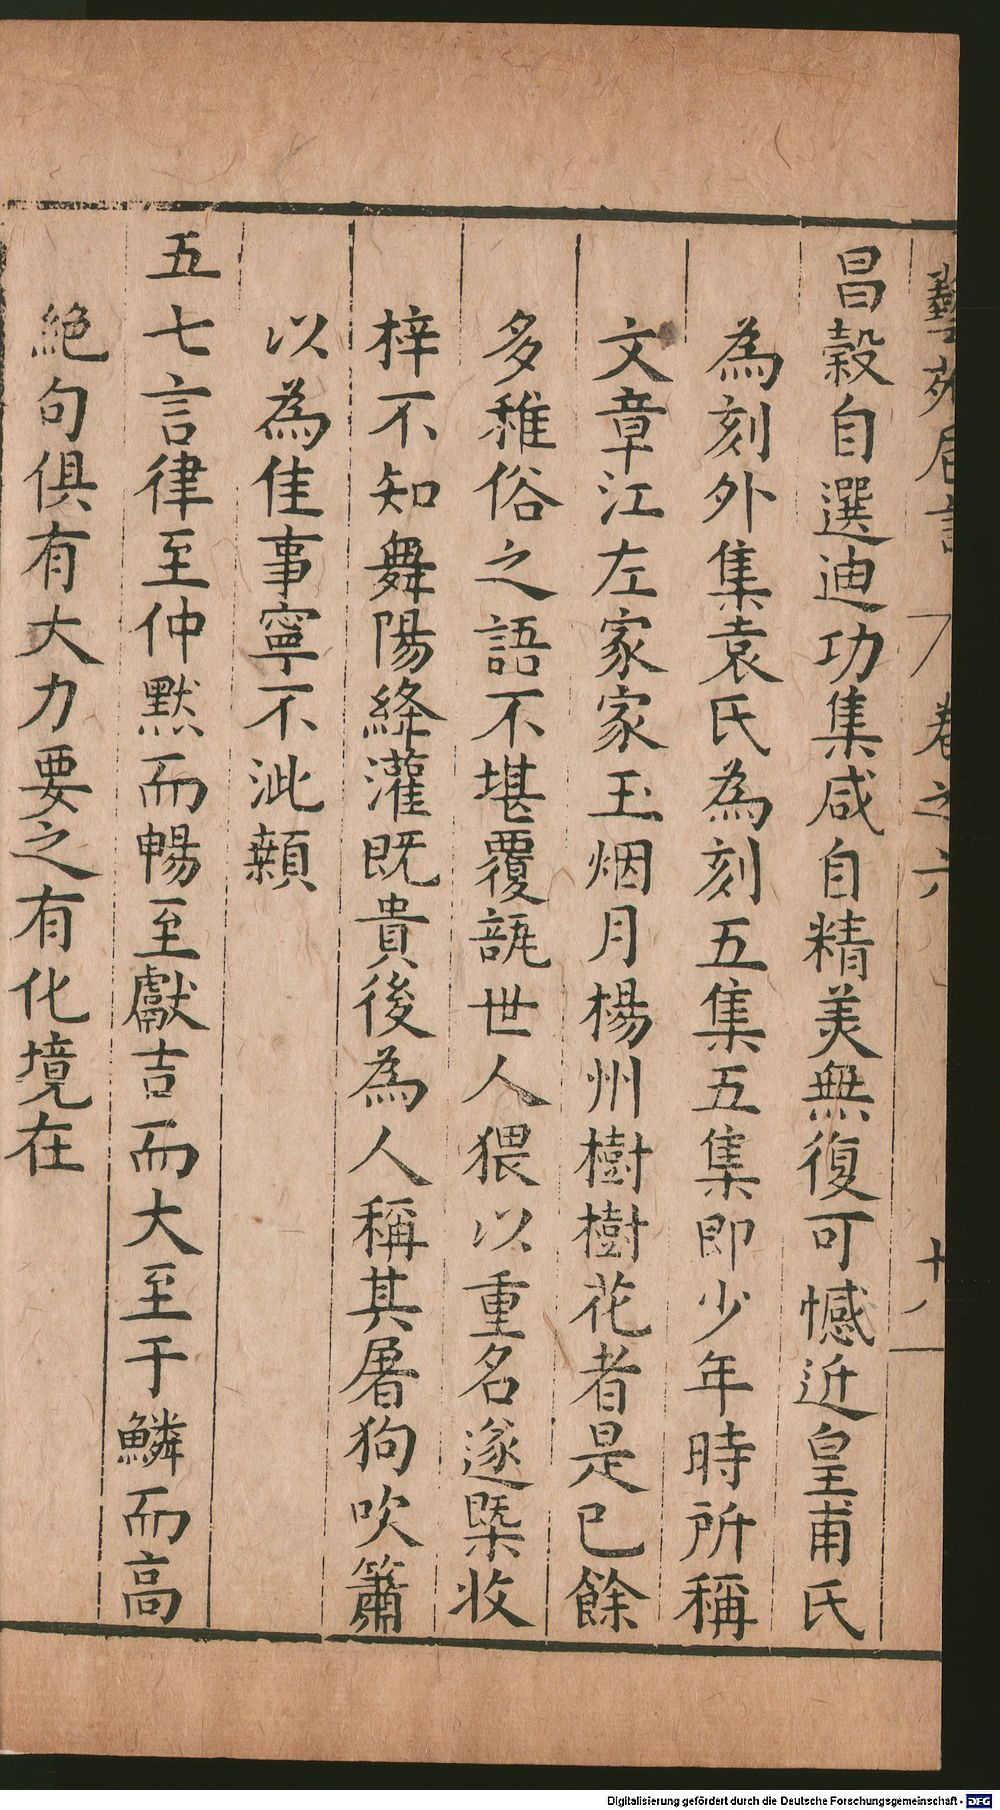 藝苑巵言 卷之六 十八
昌穀自選迪功集咸自精美無復可憾近皇甫氏
為刻外集袁氏為刻五集五集即少年時所稱
文章江左家家玉烟月楊州樹樹花者是已餘
多稚俗之語不堪覆瓿世人猥以重名遂槩收
梓不知舞陽絳灌既貴後為人稱其屠狗吹簫
以為佳事寧不泚顙
五七言律至仲默而暢至獻吉而大至于鱗而高
絕句俱有大力要之有化境在
Digitalisierung gefördert durch die Deutsche Forschungsgemeinschaft - DFG